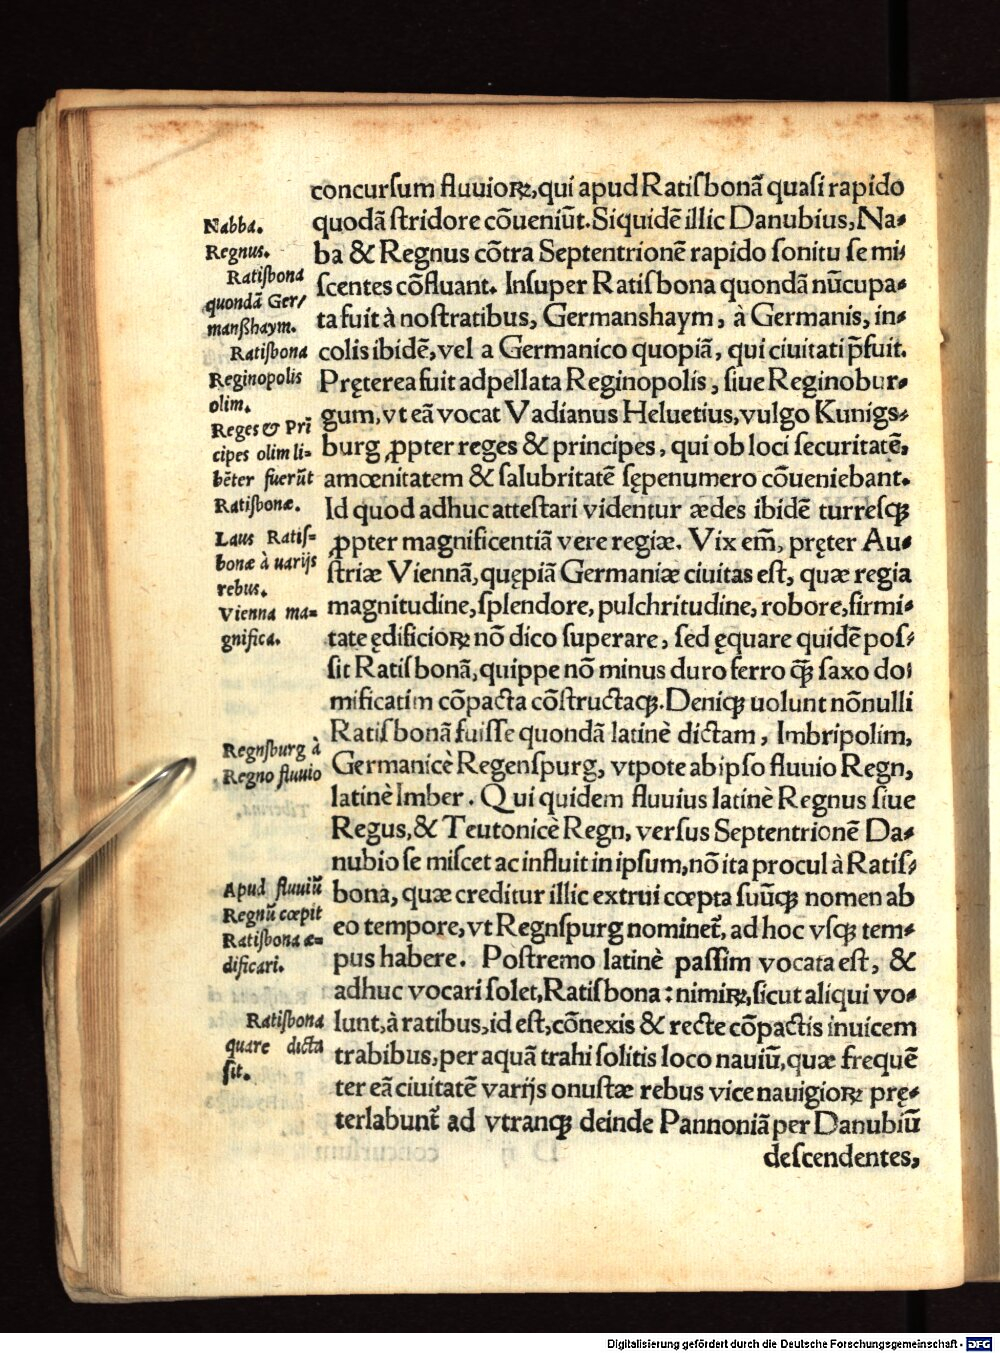 concurſum fluuioꝝ, qui apud Ratiſbonā quaſi rapido
quodā ſtridore cōueniūt. Siquidē illic Danubius, Na⸗
ba & Regnus cōtra Septentrionē rapido ſonitu ſe mi⸗
ſcentes cōfluant. Inſuper Ratiſbona quondā nūcupa⸗
ta fuit à noſtratibus, Germanshaym, à Germanis, in⸗
colis ibidē, vel a Germanico quopiā, qui ciuitati p̄fuit.
Pręterea fuit adpellata Reginopolis, ſiue Reginobur⸗
gum, vt eā vocat Vadianus Heluetius, vulgo Kunigs⸗
burg ꝓpter reges & principes, qui ob loci ſecuritatē,
amœnitatem & ſalubritatē ſępenumero cōueniebant.
Id quod adhuc atteſtari videntur ædes ibidē turreſqꝫ
ꝓpter magnificentiā vere regiæ. Vix em̄, pręter Au⸗
ſtriæ Viennā, quępiā Germaniæ ciuitas eſt, quæ regia
magnitudine, ſplendore, pulchritudine, robore, firmi⸗
tate ędificioꝝ nō dico ſuperare, ſed ęquare quidē poſ⸗
ſit Ratiſbonā, quippe nō minus duro ferro qꝫ̄ ſaxo do⸗
mificatim cōpacta cōſtructaqꝫ. Deniqꝫ uolunt nōnulli
Ratiſbonā fuiſſe quondā latinè dictam, Imbripolim,
Germanicè Regenſpurg, vtpote ab ipſo fluuio Regn,
latinè Imber. Qui quidem fluuius latinè Regnus ſiue
Regus, & Teutonicè Regn, verſus Septentrionē Da⸗
nubio ſe miſcet ac influit in ipſum, nō ita procul à Ratiſ⸗
bona, quæ creditur illic extrui cœpta ſuūqꝫ nomen ab
eo tempore, vt Regnſpurg nominet̄, ad hoc vſqꝫ tem⸗
pus habere. Poſtremo latinè paſſim vocata eſt, &
adhuc vocari ſolet, Ratiſbona: nimiꝝ, ſicut aliqui vo⸗
lunt, à ratibus, id eſt, cōnexis & recte cōpactis inuicem
trabibus, per aquā trahi ſolitis loco nauiū, quæ frequē
ter eā ciuitatē varijs onuſtæ rebus vice nauigioꝝ prę⸗
terlabunt̄ ad vtranqꝫ deinde Pannoniā per Danubiū
deſcendentes,
Nabba.
Regnus.
Ratiſbona
quondā Ger/
manßhaym.
Ratiſbona
Reginopolis
olim.
Reges & Pri
cipes olim li⸗
bēter fuerūt
Ratiſbonæ.
Laus Ratiſ⸗
bonæ à uarijs
rebus.
Vienna ma⸗
gnifica.
Regnſburg à
Regno fluuio
Apud fluuiū
Regnū cœpit
Ratiſbona æ⸗
dificari.
Ratiſbona
quare dicta
ſit.
Digitalisierung gefördert durch die Deutsche Forschungsgemeinschaft - DFG